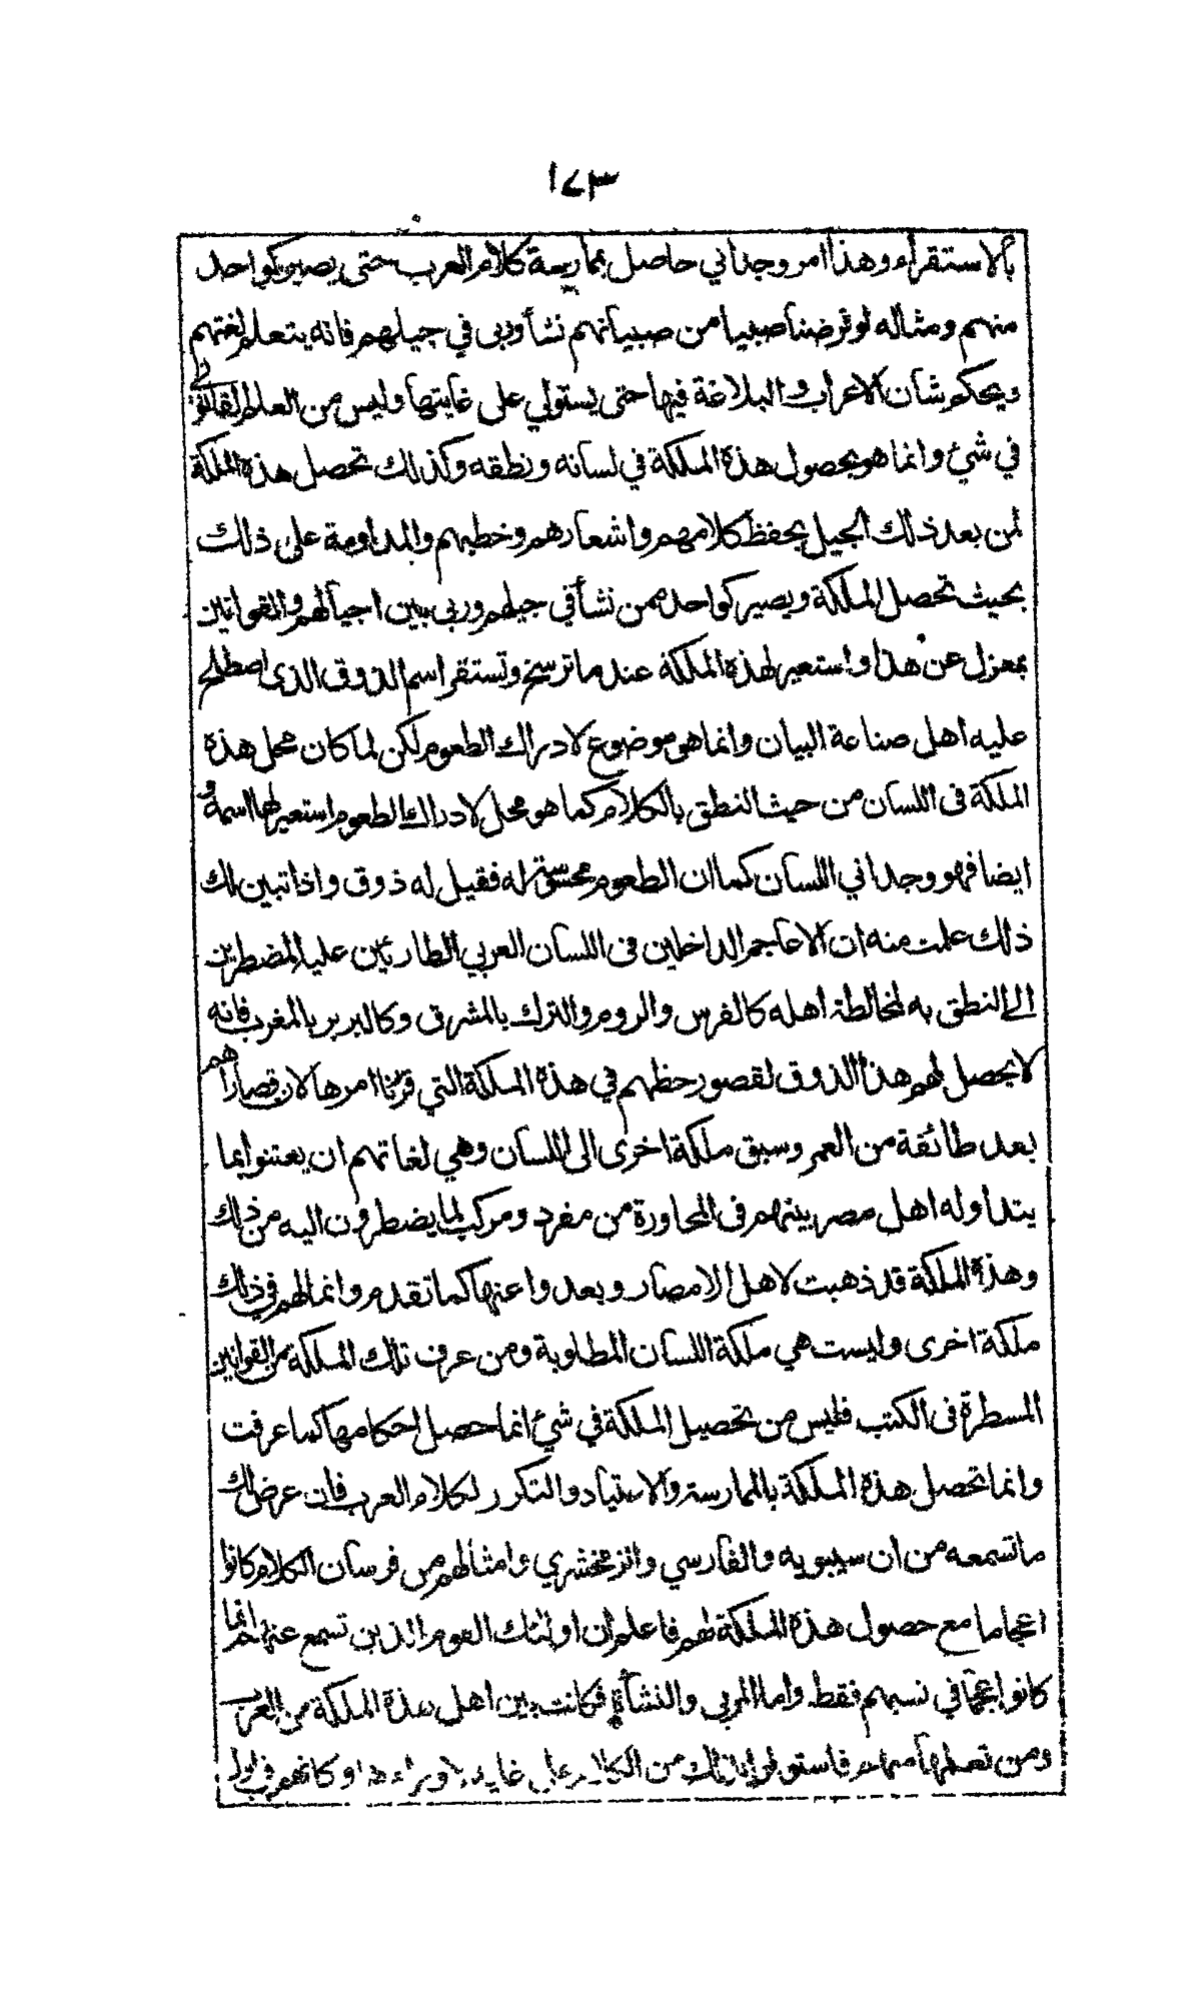 ١٤٣
بالاستقراء وهذا امر وجداني حاصل بممارسة كلام العرب حتى يصير كواحد
منهم ومثاله لو فرضنا صبيا من صبيانهم نشأ وربى في جيلهم فانه يتعلم لغتهم
ويحكم شان الاعراب والبلاغة فيها حتى يستولي على غايتها وليس من العلم القانوني
في شئ وانما هو بحصول هذة الملكة في لسانه ونطقه وكذلك تحصل هذة الملكة
لمن بعد ذلك الجيل بحفظ كلامهم واشعارهم وخطبهم والمداومة على ذلك
بحيث تحصل الملكة ويصير كواحد ممن نشأ في جيلهم وربى بين اجيالهم والقوانين
بمعزل عن هذا واستعير لهذة الملكة عندما ترسخ وتستقر اسم الذوق الذى اصطلح
عليه اهل صناعة البيان وانما هو موضوع لادراك الطعوم لكن لما كان محل هذه
الملكة فى اللسان من حيث النطق بالكلام كما هو محل لادراك الطعوم استعير لها اسمه و
ايضا فهو وجداني اللسان كما ان الطعوم محسوسة له فقيل له ذوق واذا تبين لك
ذلك علمت منه ان الاعاجم الداخلين فى اللسان العربي الطارئين عليه المضطرين
الى النطق به لمخالطة اهله كالفرس والروم والترك بالمشرق وكالبربر بالمغرب فانه
لا يحصل لهم هذا الذوق لقصور حظهم في هذة الملكة التي قررنا امرها لان قصاراهم
بعد طائفة من العمر وسبق ملكة اخرى الى اللسان وهي لغاتهم ان يعتنوا بما
يتداوله اهل مصر بينهم فى المحاورة من مفرد ومركب لما يضطرون اليه من ذلك
وهذة الملكة قد ذهبت لاهل الامصار وبعدوا عنها كما تقدم وانما لهم في ذلك
ملكة اخرى وليست هي ملكة اللسان المطلوبة ومن عرف تلك الملكة من القوانين
المسطرة فى الكتب فليس من تحصيل الملكة في شئ انما حصل احكامها كما عرفت
وانما تحصل هذة الملكة بالممارسة والاعتياد والتكرر لكلام العرب فان عرض لك
ما تسمعه من ان سيبويه والفارسي والزمخشري وامثالهم من فرسان الكلام كانوا
اعجاما مع حصول هذة الملكة لهم فاعلم ان اولئك القوم الذين تسمع عنهم انما
كانوا عجما في نسبهم فقط واما المربى والنشأة فكانت بين اهل هذة الملكة من العرب
ومن تعلمها منهم فاستولوا بذلك من الكلام على غاية لا وراءها وكانهم في اول